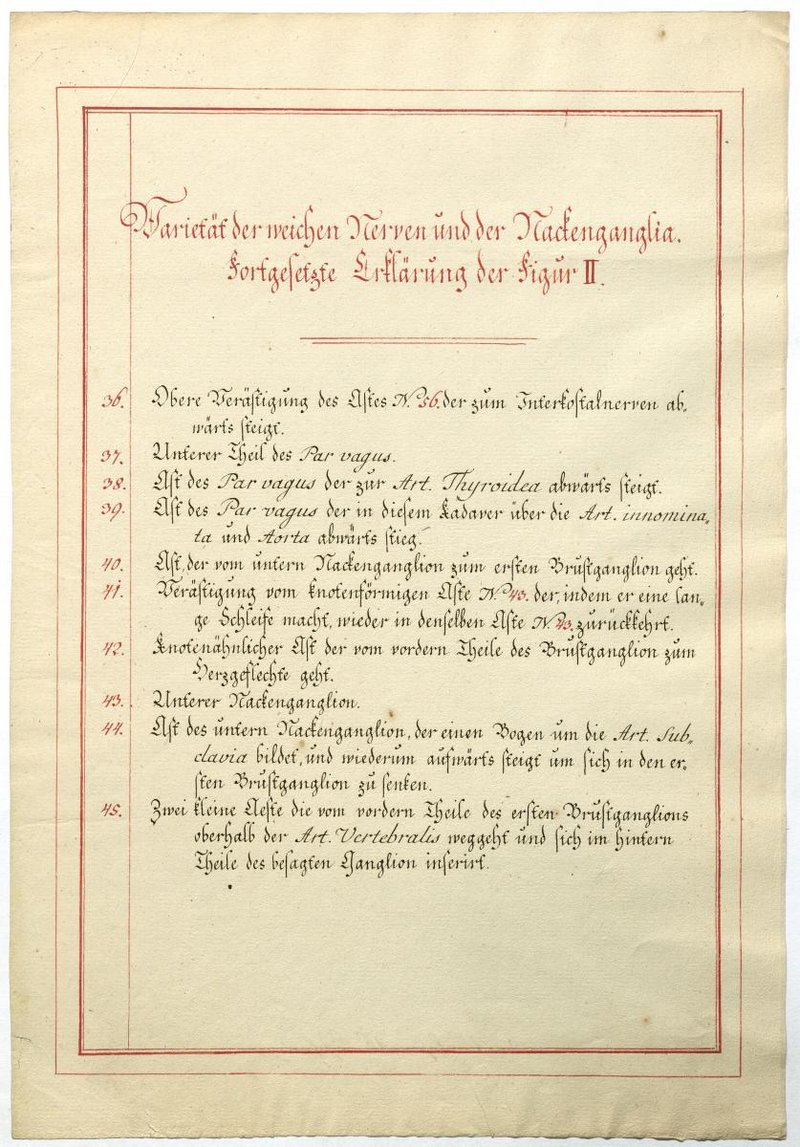 Varietät der weichen Nerven und der Nackenganglia.
Fortgesetzte Erklärung der Figur II.
36. Obere Verästigung des Astes N.º 56. der zum Interkostalnerven ab-
wärts steigt.
37. Unterer Theil des Par vagus.
38. Ast des Par vagus der zur Art. Thyroidea abwärts steigt.
39. Ast des Par vagus der in diesem Kadaver über die Art. innomina-
ta und Aorta abwärts stieg.
40. Ast, der vom untern Nackenganglion zum ersten Brustganglion geht.
41. Verästigung vom knotenförmigen Aste N.º 43. der, indem er eine lan-
ge Schleife macht, wieder in denselben Aste N.º 43. zurückkehrt.
42. Knotenähnlicher Ast der vom vordern Theile des Brustganglion zum
Herzgeflechte geht.
43. Unterer Nackenganglion.
44. Ast des untern Nackenganglion, der einen Bogen um die Art. Sub-
clavia bildet, und wiederum aufwärts steigt um sich in den er-
sten Brustganglion zu senken.
45. Zwei kleine Aeste die vom vordern Theile des ersten Brustganglions
oberhalb der Art. Vertebralis weggeht und sich im hintern
Theile des besagten Ganglion inserirt.